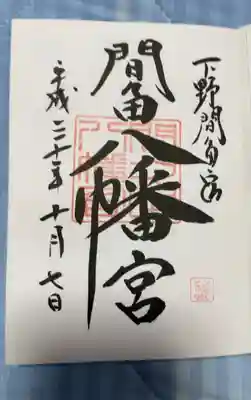 下野間々田宿
間々田八幡宮
平成三十年十月七日